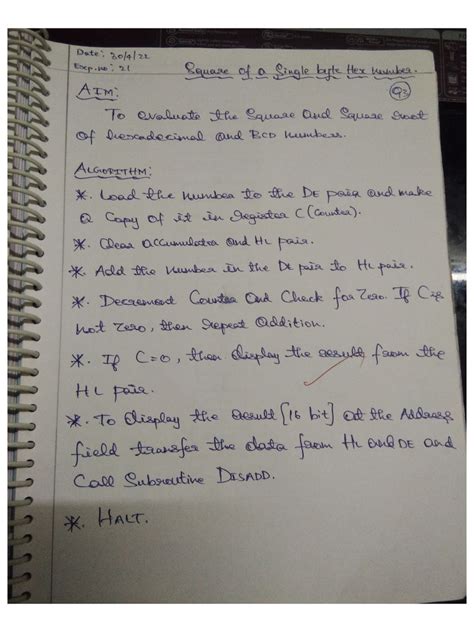 Date: 30/4/22
Exp.no: 21
Square of a Single byte Hex number.
AIM:
To evaluate the Square and Square root
of hexadecimal and BCD numbers.
ALGORITHM:
*. Load the number to the DE pair and make
a Copy of it in register C (Counter).
*. Clear accumulator and HL pair.
*. Add the number in the DE pair to HL pair.
*. Decrement Counter and Check for Zero. If C is
not Zero, then repeat addition.
*. If C=0, then display the result from the
HL pair.
*. To display the result [16 bit] at the Address
field transfer the data from HL and DE and
Call Subroutine DISADD.
*. HALT.